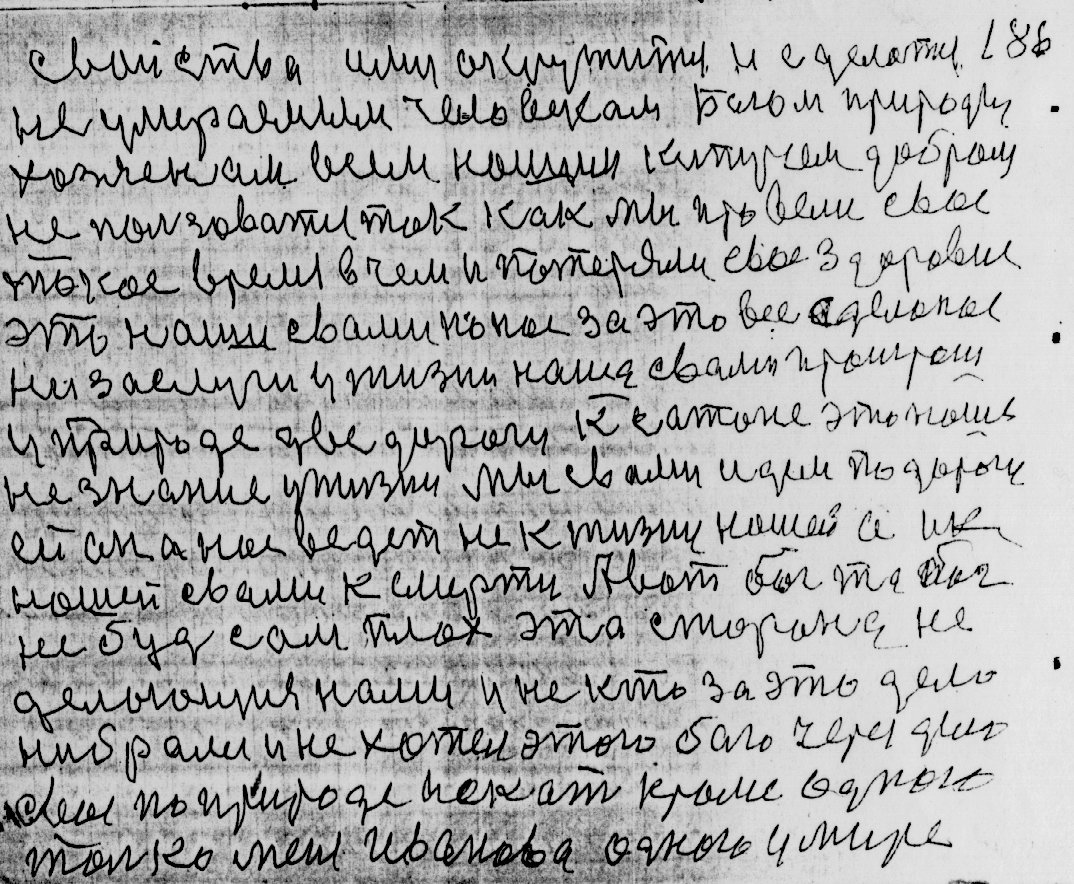 свойства или окружити и сделоти 186
не умераемим человекам Богом природи
хозяенам всем нашим кипучем добром
не ползовати так как ми провели свое
токое время в чем и потеряли свое здоровие
это наши свами попое за это все зделоное
незаслуги у жизни наша свами проиграш
у природе две дороги к катоне это нашь
не знание ужизни ми свами идем по дороги
ей она нас ведет не к жизни нашей а к
нашей свами к смерти Авот бог та бог
не буд сам плох эта сторона не
делающия нами и не кто за это дело
ни брали и не хотел этого бога через дело
свое по природе искат кроме одного
толко меня Иванова одного умире